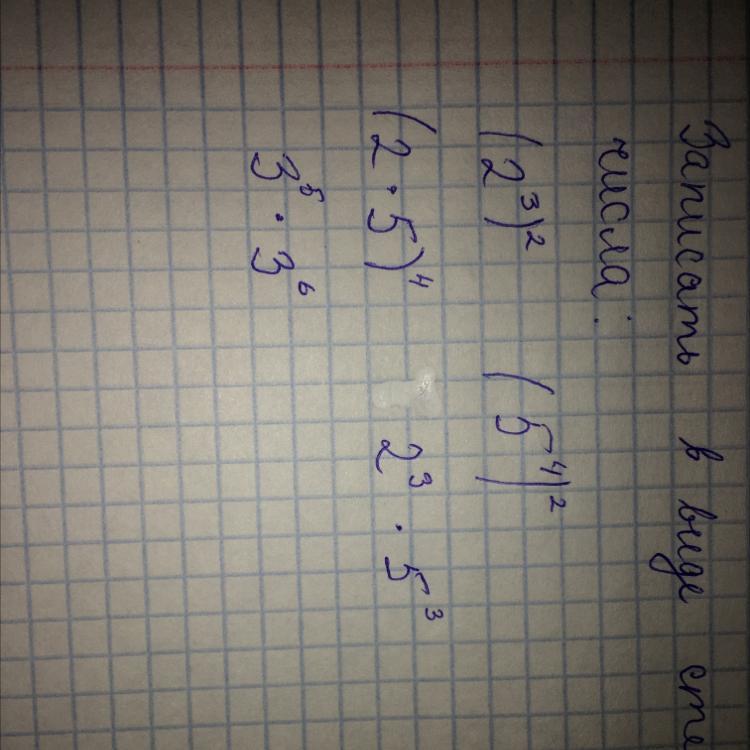 Записать в виде сте
числа:
(2³)² (5⁴)²
(2 · 5)⁴ 2³ · 5³
3⁵ · 3⁶